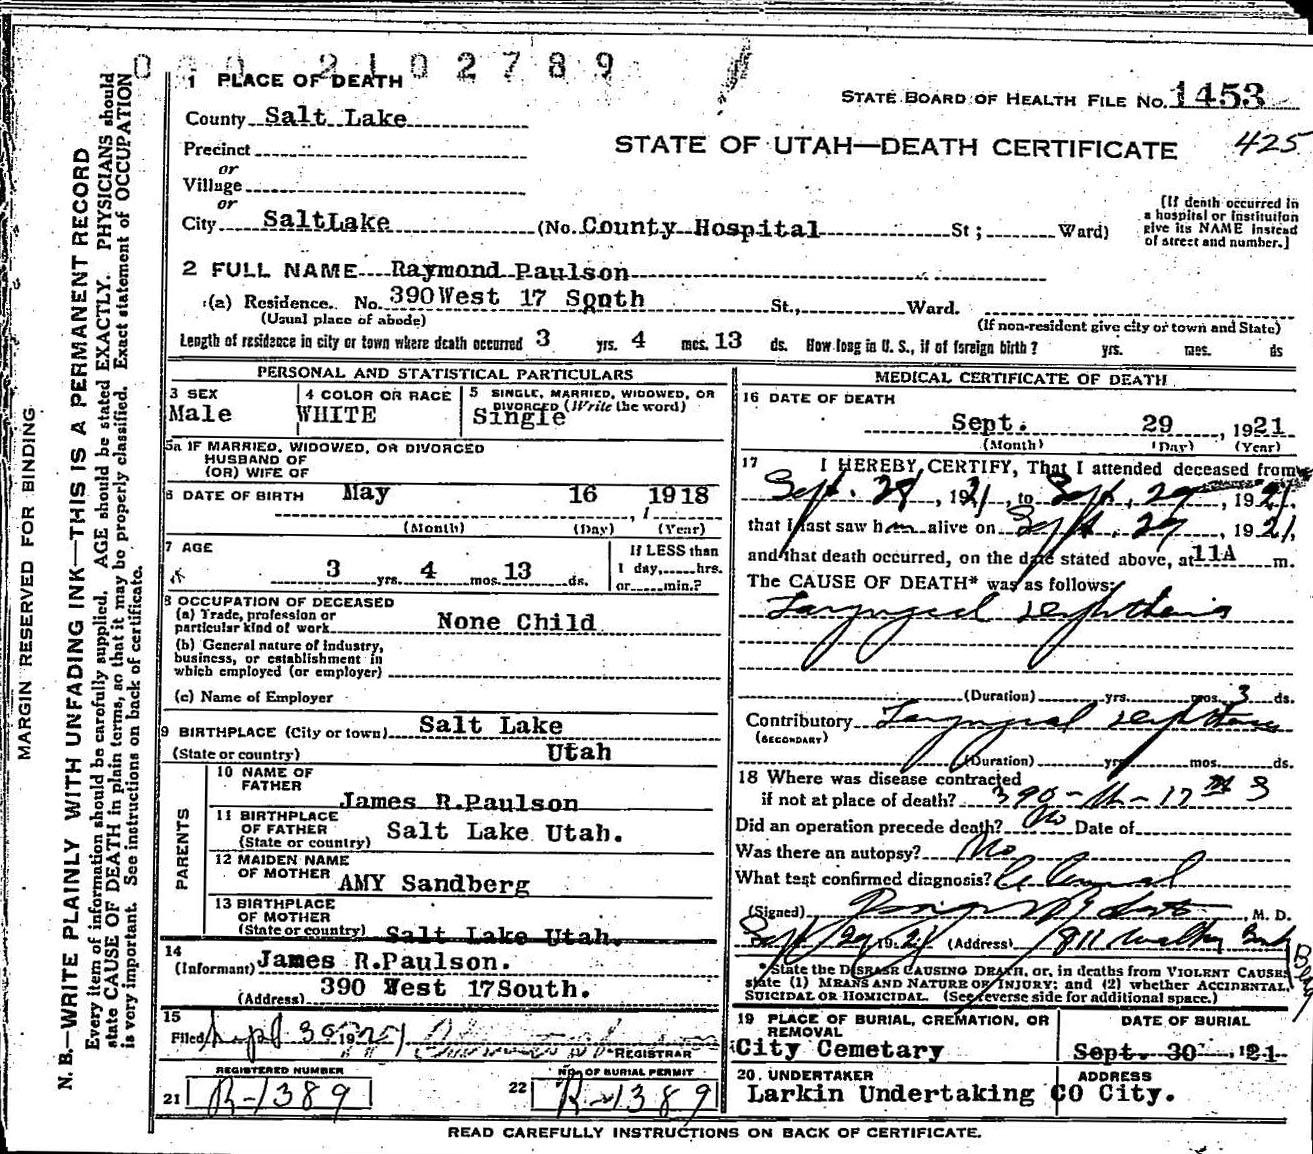 000 2102789
1 PLACE OF DEATH
STATE BOARD OF HEALTH FILE No. 1453
County Salt Lake
STATE OF UTAH—DEATH CERTIFICATE 425
Precinct
or
Village
or
City SaltLake (No. County Hospital St; Ward)
[If death occurred in
a hospital or institution
give its NAME instead
of street and number.]
2 FULL NAME Raymond Paulson
(a) Residence. No. 390West 17 Sonth St., Ward.
(Usual place of abode) (If non-resident give city or town and State)
Length of residence in city or town where death occurred 3 yrs. 4 mos. 13 ds. How long in U. S., if of foreign birth? yrs. mos. ds
PERSONAL AND STATISTICAL PARTICULARS
3 SEX 4 COLOR OR RACE 5 SINGLE, MARRIED, WIDOWED, OR
DIVORCED (Write the word)
Male WHITE Single
5a IF MARRIED, WIDOWED, OR DIVORCED
HUSBAND OF
(OR) WIFE OF
6 DATE OF BIRTH May 16 1918
, 1
(Month) (Day) (Year)
7 AGE If LESS than
3 yrs. 4 mos. 13 ds. 1 day, hrs.
or min.?
8 OCCUPATION OF DECEASED
(a) Trade, profession or
particular kind of work None Child
(b) General nature of industry,
business, or establishment in
which employed (or employer)
(c) Name of Employer
9 BIRTHPLACE (City or town) Salt Lake
(State or country) Utah
PARENTS
10 NAME OF
FATHER
James R.Paulson
11 BIRTHPLACE
OF FATHER Salt Lake Utah.
(State or country)
12 MAIDEN NAME
OF MOTHER
AMY Sandberg
13 BIRTHPLACE
OF MOTHER
(State or country) Salt Lake Utah.
14
(Informant) James R.Paulson.
(Address) 390 West 17South.
15
Filed Sept 30 1921
REGISTRAR
REGISTERED NUMBER No. OF BURIAL PERMIT
21 R-1389 22 R-1389
MEDICAL CERTIFICATE OF DEATH
16 DATE OF DEATH
Sept. 29, 1921
(Month) (Day) (Year)
17 I HEREBY CERTIFY, That I attended deceased from
Sept. 28, 1921, to Sept. 29, 1921,
that I last saw him alive on Sept. 29, 1921,
and that death occurred, on the date stated above, at 11A m.
The CAUSE OF DEATH* was as follows:
Laryngeal diphtheria
(Duration) yrs. mos. 3 ds.
Contributory Laryngeal diphtheria
(SECONDARY)
(Duration) yrs. mos. ds.
18 Where was disease contracted
if not at place of death? 390-W-17th S
Did an operation precede death? No Date of
Was there an autopsy? No
What test confirmed diagnosis? Clinical
(Signed) , M. D.
Sept 29 1921 (Address) 811 Walker Bank Bldg
*State the DISEASE CAUSING DEATH, or, in deaths from VIOLENT CAUSES
state (1) MEANS AND NATURE OF INJURY; and (2) whether ACCIDENTAL,
SUICIDAL OR HOMICIDAL. (See reverse side for additional space.)
19 PLACE OF BURIAL, CREMATION, OR
REMOVAL DATE OF BURIAL
City Cemetary Sept. 30 '21
20. UNDERTAKER ADDRESS
Larkin Undertaking CO City.
READ CAREFULLY INSTRUCTIONS ON BACK OF CERTIFICATE.
MARGIN RESERVED FOR BINDING
N. B.—WRITE PLAINLY WITH UNFADING INK—THIS IS A PERMANENT RECORD
Every item of information should be carefully supplied. AGE should be stated EXACTLY. PHYSICIANS should
state CAUSE OF DEATH in plain terms, so that it may be properly classified. Exact statement of OCCUPATION
is very important. See instructions on back of certificate.